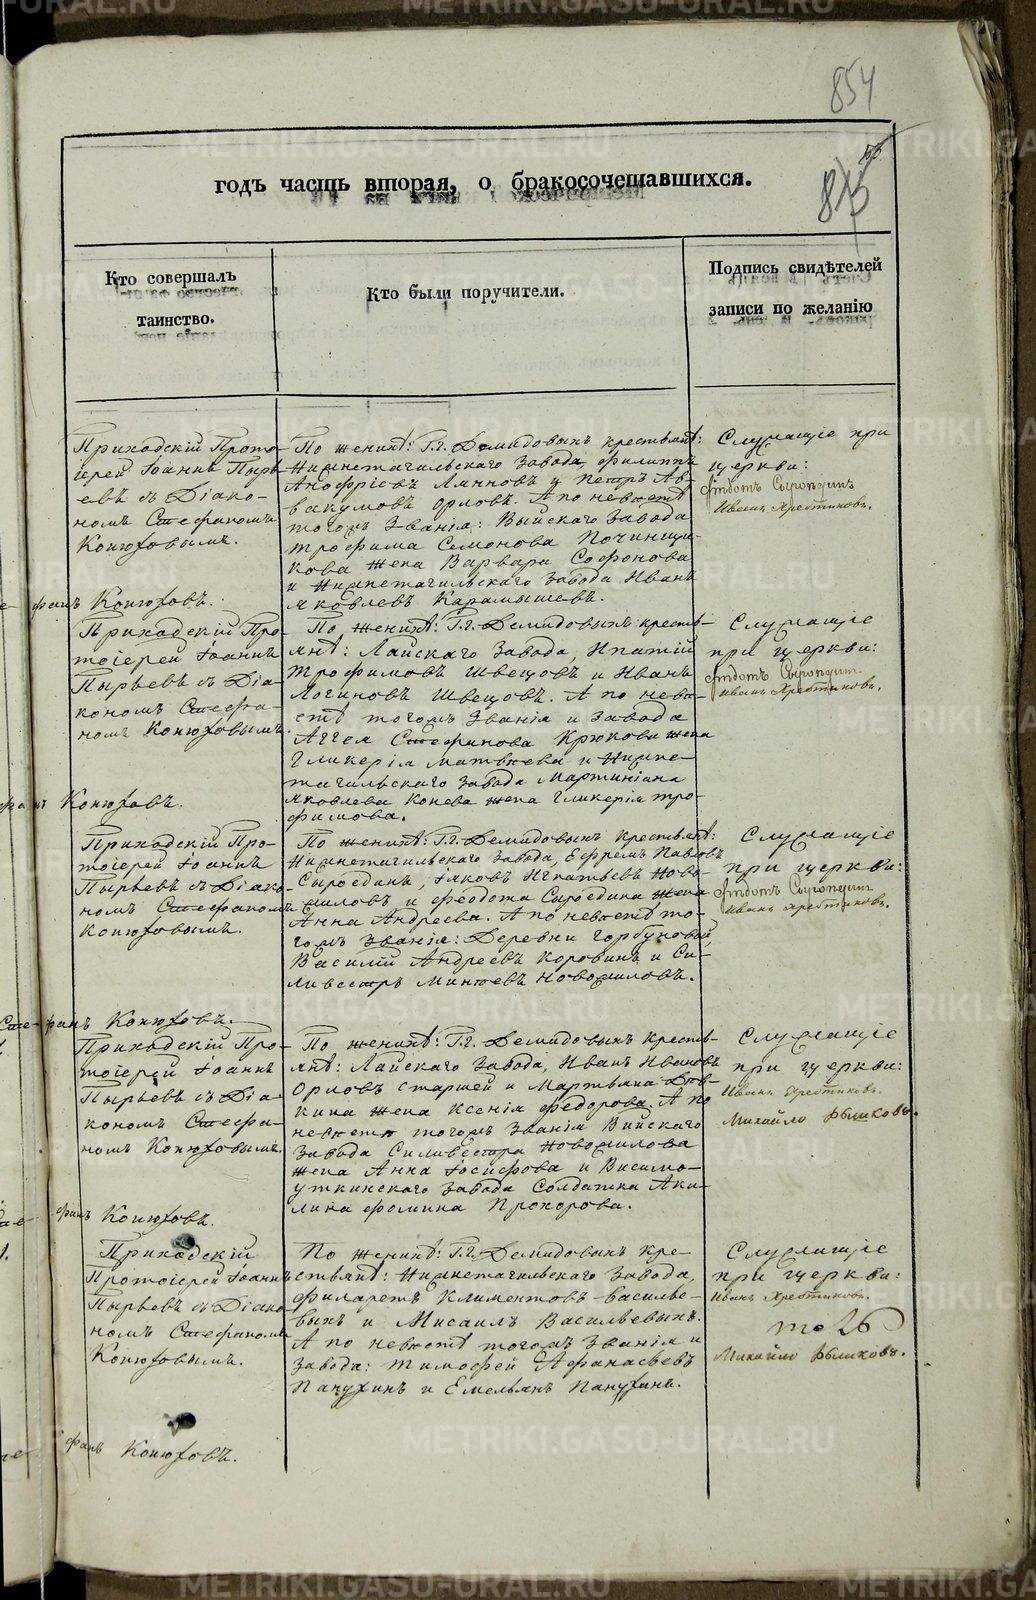 854
годъ часть вторая, о бракосочетавшихся.
Кто совершалъ
таинство.
Кто были поручители.
Подпись свидѣтелей
записи по желанію
Приходскій Прото-
іерей Іоаннъ Пырь-
евъ съ Діако-
номъ Стефаномъ
Конюховымъ.
По женихѣ: Г.г. Демидовыхъ крестьянѣ:
Нижнетагильскаго завода, Филиппъ
Анофріевъ Линновъ и Петръ Ав-
вакумовъ Орловъ. А по невѣстѣ
тогожъ званія: Выйскаго завода
Трофима Семенова Починщи-
кова жена Варвара Софонова
и Нижнетагильскаго завода Иванъ
Яковлевъ Карамышевъ.
Служащіе при
церкви:
Ѳедотъ Сыропдинъ
Иванъ Хребтиковъ.
фанъ Конюховъ.
Приходскій Про-
тоіерей Іоаннъ
Пырьевъ съ Діа-
кономъ Стефа-
номъ Конюховымъ.
По женихѣ: Г.г. Демидовыхъ крестья-
янѣ: Лайскаго завода, Ипатій
Трофимовъ Швецовъ и Иванъ
Логиновъ Швецовъ. А по невѣ-
стѣ тогожъ званія и завода
Аггея Стефанова Крюкова жена
Гликерія Матвѣева и Нижне-
тагильскаго завода Мартиніана
Яковлева Конева жена Гликерія Тро-
фимова.
Служащіе
при церкви:
Ѳедотъ Сыропдинъ
Иванъ Хребтиковъ.
фанъ Конюховъ.
Приходскій Про-
тоіерей Іоаннъ
Пырьевъ съ Діако-
номъ Стефаномъ
Конюховымъ.
По женихѣ: Г.г. Демидовыхъ крестьянѣ:
Нижнетагильскаго завода, Ефремъ Павловъ
Сыроединъ, Іяковъ Игнатьевъ Ново-
шиловъ и Ѳеодота Сыроедина жена
Анна Андреева. А по невѣстѣ то-
гожъ званія: Деревни Горбуновой,
Василій Андреевъ Коровинъ и Си-
ливестръ Минѣевъ Новошиловъ.
Служащіе
при церкви:
Ѳедотъ Сыропдинъ
Иванъ Хребтиковъ.
Сте-фанъ Конюховъ.
Приходскій Про-
тоіерей Іоаннъ
Пырьевъ съ Діа-
кономъ Стефа-
номъ Конюховымъ.
По женихѣ: Г.г. Демидовыхъ крестья-
янѣ: Лайскаго завода, Иванъ Ивановъ
Орловъ старшей и Мартьяна
кина жена Ксенія Федорова. А по
невѣстѣ тогожъ званія Выйскаго
завода Силивестра Новошилова
жена Анна Іосифова и Висимо-
уткинскаго завода Солдатка Аки-
лина Фомина Прохорова.
Служащіе
при церкви:
Иванъ Хребтиковъ.
Михайло Рышковъ.
фанъ Конюховъ.
Приходскій
Протоіерей Іоаннъ
Пырьевъ съ Діако-
номъ Стефаномъ
Конюховымъ.
По женихѣ: Г.г. Демидовыхъ кре-
стьянѣ: Нижнетагильскаго завода,
Филаретъ Климентовъ Василье-
выхъ и Мисаилъ Васильевыхъ.
А по невѣстѣ тогожъ званія и
завода: Тимофей Афанасьевъ
Панухинъ и Емельянъ Панухинъ.
Служащіе
при церкви:
Иванъ Хребтиковъ.
Михайло Рышковъ.
фанъ Конюховъ.